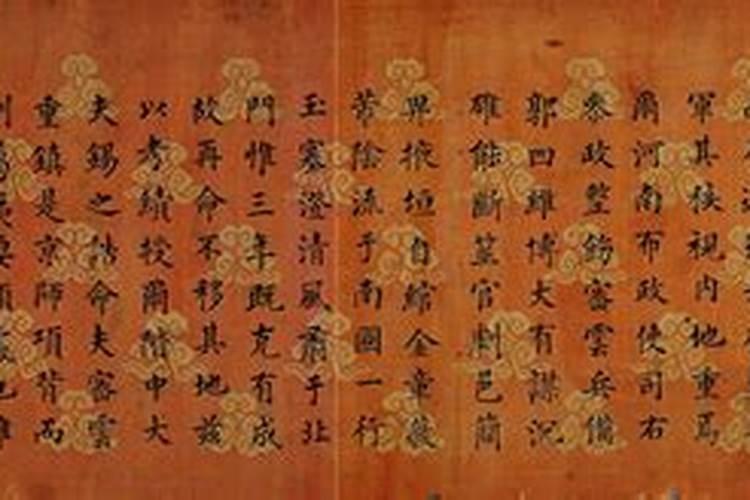 軍其核視內地重焉
爾河南布政使司右
參政整飭密雲兵備
郭四維博大有謀沉
雄能斷筮官劇邑簡
畀掖垣自綜金章薇
芾陰流于南國一行
玉塞澄清風肅于北
門惟三年既克有成
故再命不移其地茲
以考績授爾階中大
夫錫之誥命夫密雲
重鎮是京師項背而